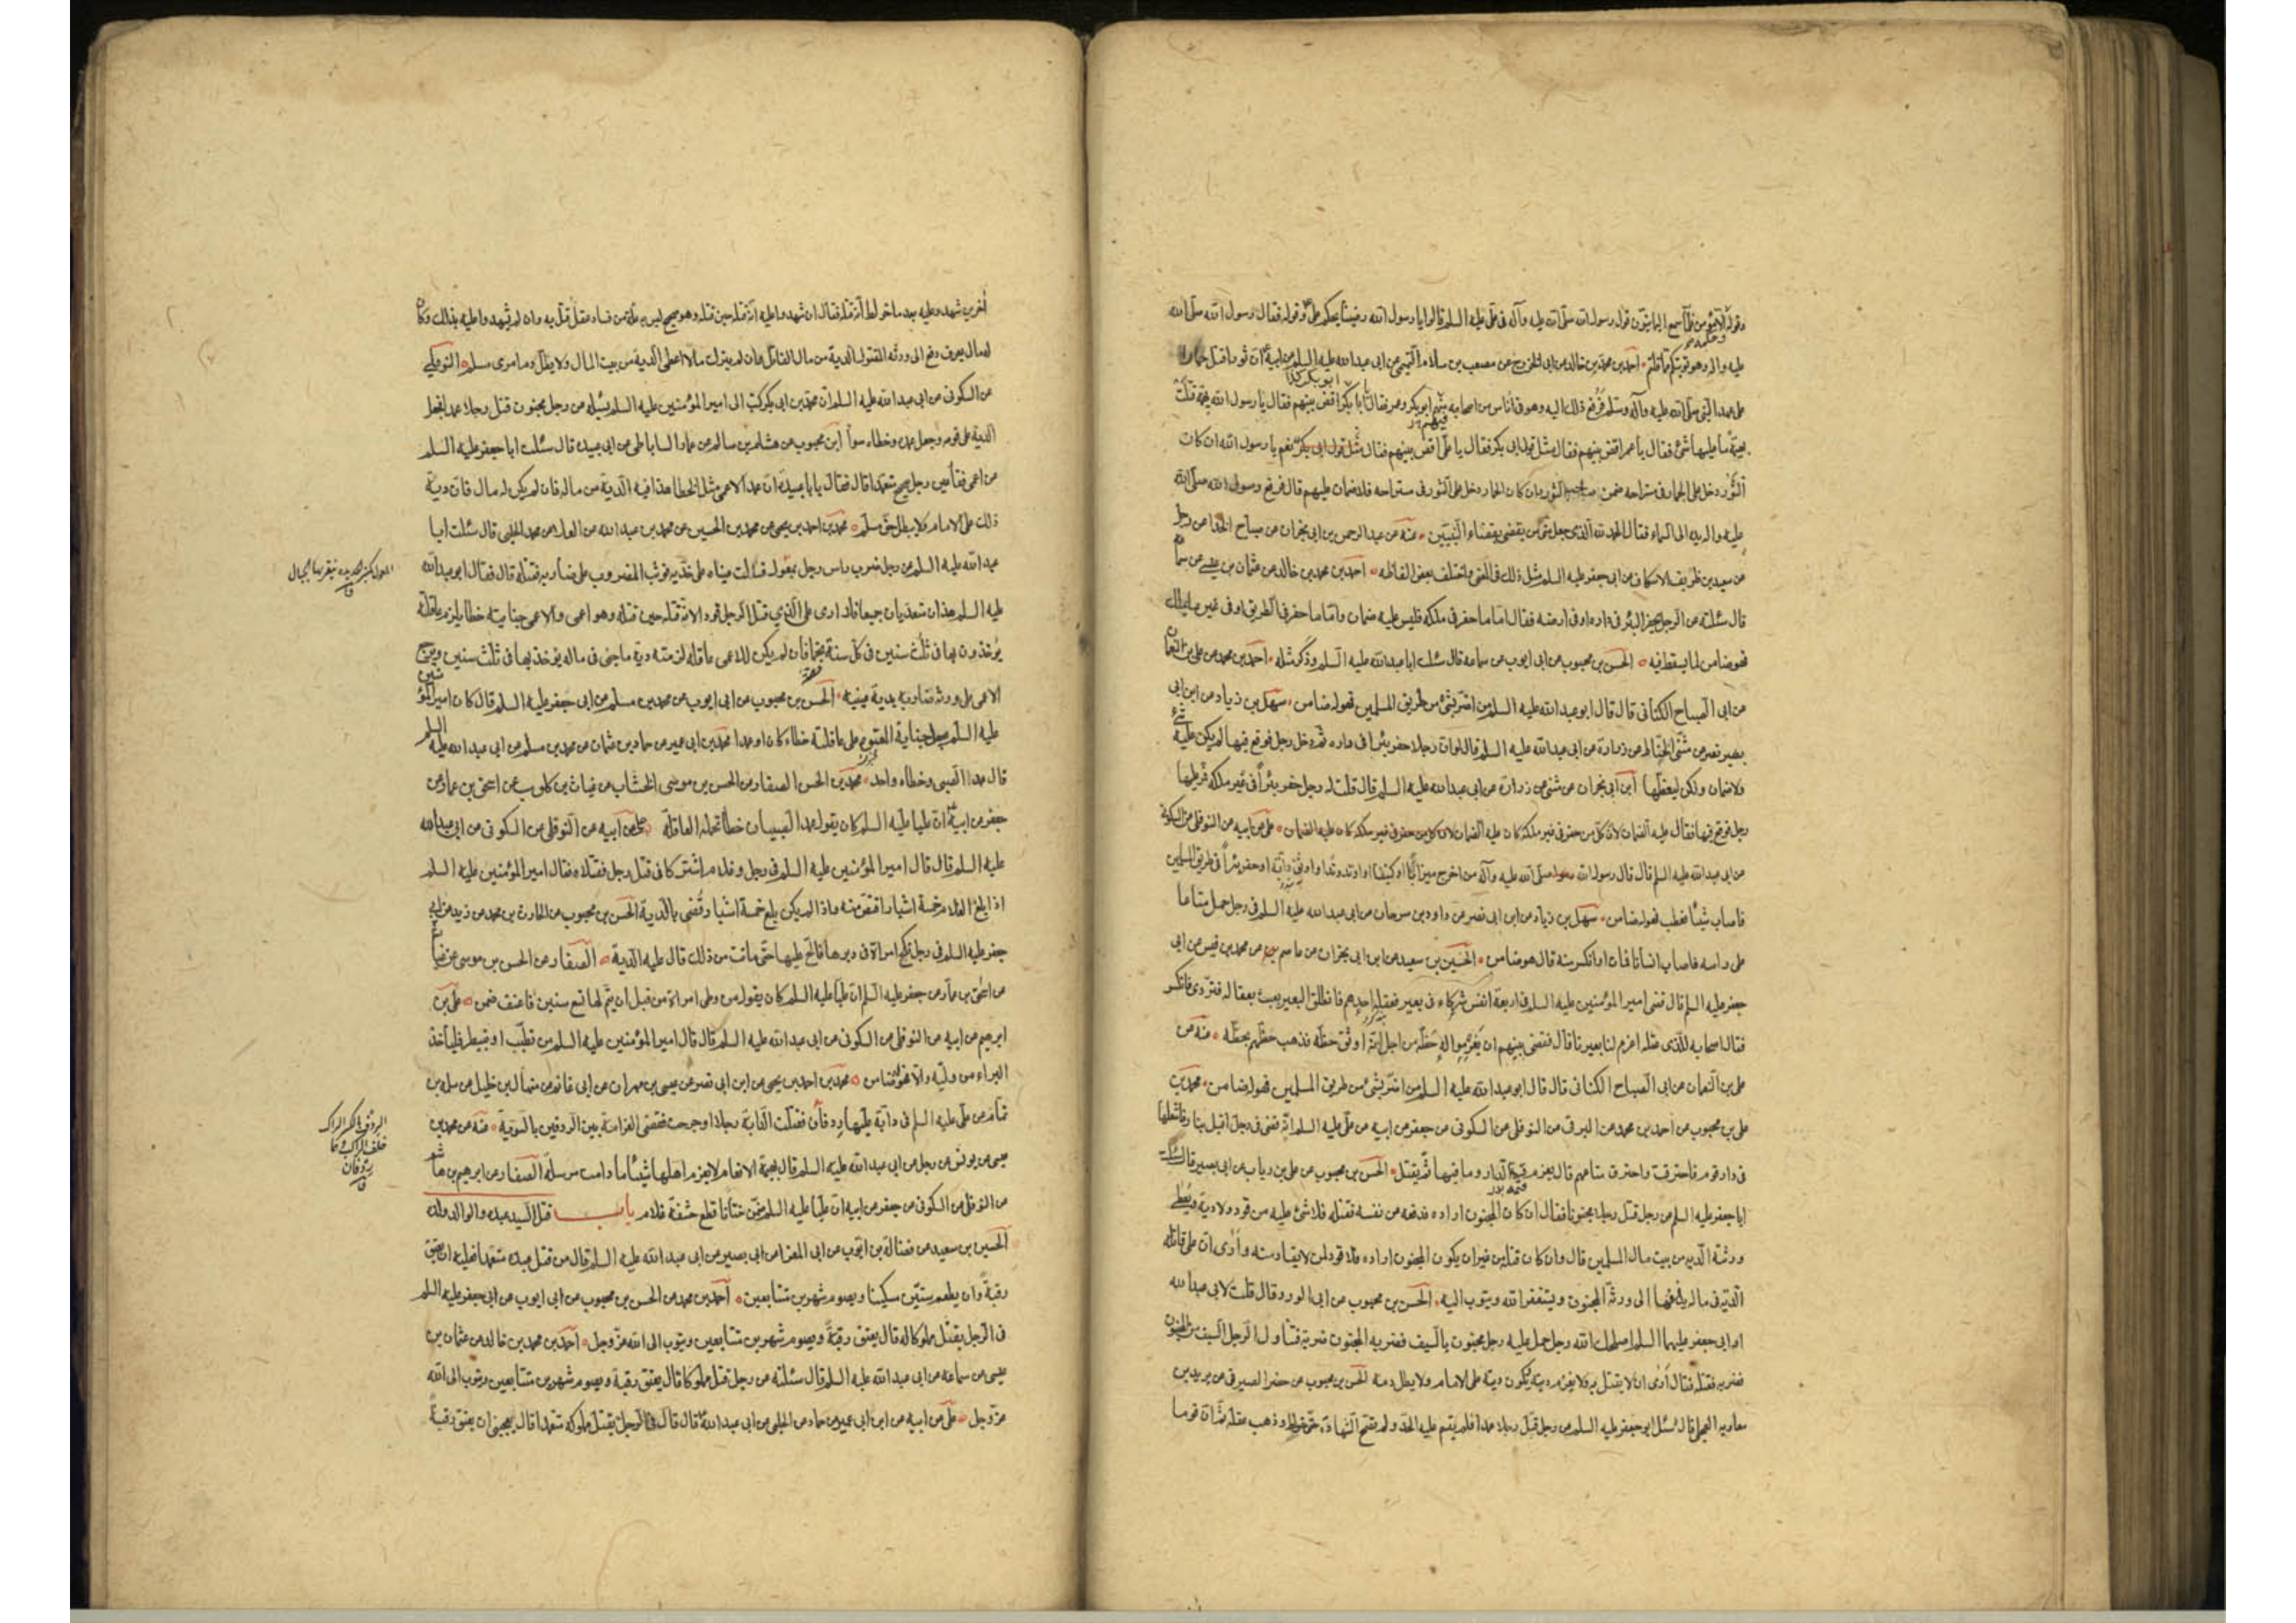 وقوله الا مؤمن فلما سمع اليمانيون قول رسول الله صلى الله عليه وآله في علي عليه السلم قالوا يا رسول الله رضينا بحكم علي وقوله فقال رسول الله صلى الله
عليه واله وهو توبتكم مما قلتم احمد بن محمد بن خالد عن ابى الخزرج عن مصعب بن سلام التميمي عن ابى عبد الله عليه السلم عن ابيه ان ثورا قتل حمارا
على عهد النبي صلى الله عليه وآله وسلم فرفع ذلك اليه وهو في اناس من اصحابه منهم ابو بكر وعمر فقال يا ابا بكر اقض بينهم فقال يا رسول الله بهيمة قتلت
بهيمة ما عليها شئ فقال يا عمر اقض بينهم فقال مثل قول ابى بكر فقال يا علي اقض بينهم فقال نعم يا رسول الله ان كان
الثور دخل على الحمار في مستراحه ضمن اصحاب الثور وان كان الحمار دخل على الثور في مستراحه فلا ضمان عليهم قال فرفع رسول الله صلى الله
عليه واله يده الى السماء فقال الحمد لله الذي جعل مني من يقضي بقضاء النبيين عنه عن عبد الرحمن بن ابى نجران عن صباح الحذا عن رجل
عن سعد بن طريف الاسكاف عن ابى جعفر عليه السلم مثل ذلك في المعنى واختلف بعض الفاظه احمد بن محمد بن خالد عن عثمان بن عيسى عن سماعة
قال سئلته عن الرجل يحفر البئر في داره او في ارضه فقال اما ما حفر في ملكه فليس عليه ضمان واما ما حفر في الطريق او في غير ما يملك
فهو ضامن لما يسقط فيه الحسن بن محبوب عن ابى ايوب عن سماعة قال سئلت ابا عبد الله عليه السلم وذكر مثله احمد بن محمد عن علي بن النعمان
عن ابى الصباح الكنانى قال قال ابو عبد الله عليه السلم من اضر بشئ من طريق المسلمين فهو له ضامن سهل بن زياد عن ابن ابى
نصر عن مثنى الحناط عن زرارة عن ابى عبد الله عليه السلم قال لو ان رجلا حفر بئرا في داره ثم دخل رجل فوقع فيها لم يكن عليه شئ
ولا ضمان ولكن ليغطها ابن ابى نجران عن مثنى عن زرارة عن ابى عبد الله عليه السلم قال قلت له رجل حفر بئرا في غير ملكه فمر عليها
رجل فوقع فيها فقال عليه الضمان لان كل من حفر في غير ملكه كان عليه الضمان علي عن ابيه عن النوفلي عن السكونى
عن ابى عبد الله عليه السلم قال قال رسول الله صلى الله عليه وآله من اخرج ميزابا او كنيفا او اوتد وتدا او اوثق دابة او حفر بئرا في طريق المسلمين
فاصاب شيئا فعطب فهو له ضامن سهل بن زياد عن ابن ابى نصر عن داود بن سرحان عن ابى عبد الله عليه السلم في رجل حمل متاعا
على راسه فاصاب انسانا فمات او انكسر منه قال هو ضامن الحسين بن سعيد عن ابن ابى نجران عن عاصم عن محمد بن قيس عن ابى
جعفر عليه السلم قال قضى امير المؤمنين عليه السلم في اربعة انفس شركاء في بعير فعقله احدهم فانطلق البعير يعبث بعقاله فتردى فانكسر
فقال اصحابه للذى عقله اغرم لنا بعيرنا قال فقضى بينهم ان يغرموا له حظه من اجل انه اوثق حظه فذهب حظهم بحظه عنه عن
علي بن النعمان عن ابى الصباح الكنانى قال قال ابو عبد الله عليه السلم من اضر بشئ من طريق المسلمين فهو له ضامن محمد بن
علي بن محبوب عن احمد بن محمد عن البرقى عن النوفلي عن السكونى عن جعفر عن ابيه عن علي عليه السلم انه قضى في رجل اقبل بنار فاشعلها
في دار قوم فاحترقت واحترق متاعهم قال يغرم قيمة الدار وما فيها ثم يقتل الحسن بن محبوب عن علي بن رياب عن ابى بصير قال سئلت
ابا جعفر عليه السلم عن رجل قتل رجلا مجنونا فقال ان كان المجنون اراده فدفعه عن نفسه فقتله فلا شئ عليه من قود ولا دية ويعطى
ورثته الدية من بيت مال المسلمين قال وان كان قتله من غير ان يكون المجنون اراده فلا قود لمن لا يقاد منه وأرى ان على قاتله
الدية في ماله يدفعها الى ورثة المجنون ويستغفر الله ويتوب اليه الحسن بن محبوب عن ابى الورد قال قلت لابى عبد الله
او ابى جعفر عليهما السلم اصلحك الله رجل حمل عليه رجل مجنون بالسيف فضربه المجنون ضربة فتناول الرجل السيف من المجنون
فضربه فقتله فقال أرى ان لا يقتل به ولا يغرم ديته وتكون ديته على الامام ولا يطل دمه الحسن بن محبوب عن خضر الصيرفى عن بريد بن
معاوية العجلى قال سئل ابو جعفر عليه السلم عن رجل قتل رجلا عمدا فلم يقم عليه الحد ولم تصح الشهادة حتى خولط وذهب عقله ثم ان قوما
آخرين شهدوا عليه بعد ما خولط أنه قتله فقال ان شهدوا عليه انه قتله حين قتله وهو صحيح ليس به علة من فساد عقل قتل به وان لم يشهدوا عليه بذلك وكان
له مال يعرف دفع الى ورثة المقتول الدية من مال القاتل وان لم يترك مالا اعطى الدية من بيت المال ولا يطل دم امرئ مسلم النوفلى
عن السكونى عن ابى عبد الله عليه السلم ان محمد بن ابى بكر كتب الى امير المؤمنين عليه السلم يسئله عن رجل مجنون قتل رجلا عمدا فجعل
الدية على قومه وجعل عمده وخطاءه سوآ ابن محبوب عن هشام بن سالم عن عمار الساباطى عن ابى عبيدة قال سئلت ابا جعفر عليه السلم
عن اعمى فقأ عين رجل صحيح متعمدا قال فقال يا ابا عبيدة ان عمد الاعمى مثل الخطا هذا فيه الدية من ماله فان لم يكن له مال فان دية
ذلك على الامام ولا يبطل حق مسلم محمد بن احمد بن يحيى عن محمد بن الحسين عن محمد بن عبد الله عن العلا عن محمد الحلبى قال سئلت ابا
عبد الله عليه السلم عن رجل ضرب راس رجل بمعول فسالت عيناه على خديه فوثب المضروب على ضاربه فقتله قال فقال ابو عبد الله
عليه السلم هذان متعديان جميعا فلا ارى على الذي قتل الرجل قودا لانه قتله حين قتله وهو اعمى والاعمى جنايته خطا يلزم عاقلته
يؤخذون بها في ثلث سنين في كل سنة نجما فان لم يكن للاعمى عاقلة لزمته دية ما جنى في ماله يؤخذ بها في ثلث سنين ويرجع
الاعمى على ورثة ضاربه بدية عينيه الحسن بن محبوب عن ابى ايوب عن محمد بن مسلم عن ابى جعفر عليه السلم قال كان امير المؤمنين
عليه السلم يجعل جناية المعتوه على عاقلته خطاء كان او عمدا محمد بن ابى عمير عن حماد بن عثمان عن محمد بن مسلم عن ابى عبد الله عليه السلم
قال عمد الصبى وخطاه واحد محمد بن الحسن الصفار عن الحسن بن موسى الخشاب عن غياث بن كلوب عن اسحق بن عمار عن
جعفر عن ابيه ان عليا عليه السلم كان يقول عمد الصبيان خطأ تحمله العاقلة علي عن أبيه عن النوفلى عن السكونى عن ابى عبد الله
عليه السلم قال قال امير المؤمنين عليه السلم في رجل وغلام اشتركا في قتل رجل فقتلاه فقال امير المؤمنين عليه السلم
اذا بلغ الغلام خمسة اشبار اقتص منه واذا لم يكن بلغ خمسة اشبار قضى بالدية الحسن بن محبوب عن الحارث بن محمد عن زيد عن ابى
جعفر عليه السلم في رجل نكح امرأة في دبرها فالح عليها حتى ماتت من ذلك قال عليه الدية الصفار عن الحسن بن موسى عن غياث
عن اسحق بن عمار عن جعفر عليه السلم ان عليا عليه السلم كان يقول من وطى امراة من قبل ان يتم لها تسع سنين فاعنف ضمن علي بن
ابراهيم عن ابيه عن النوفلى عن السكونى عن ابى عبد الله عليه السلم قال قال امير المؤمنين عليه السلم من تطبب او تبيطر فلياخذ
البراءة من وليه والا فهو ضامن محمد بن احمد بن يحيى عن ابن ابى نصر عن عيسى بن مهران عن ابى غانم عن منهال بن خليل عن سلمة بن
تمام عن علي عليه السلم في دابة عليها ردفان فقتلت الدابة رجلا او جرحت فقضى الغرامة بين الردفين بالسوية عنه عن محمد بن
عيسى عن يونس عن رجل عن ابى عبد الله عليه السلم قال بهيمة الانعام لا يغرم اهلها شيئا ما دامت مرسلة الصفار عن ابرهيم بن هاشم
عن النوفلى عن السكونى عن جعفر عن ابيه ان عليا عليه السلم ضمن ختانا قطع حشفة غلام باب قتل السيد عبده والوالد ولده
الحسين بن سعيد عن فضالة بن ايوب عن ابى المغرا عن ابى بصير عن ابى عبد الله عليه السلم قال من قتل عبده متعمدا فعليه ان يعتق
رقبة وان يطعم ستين مسكينا ويصوم شهرين متتابعين أحمد بن محمد عن الحسن بن محبوب عن ابى ايوب عن ابى جعفر عليه السلم
في الرجل يقتل مملوكا له قال يعتق رقبة ويصوم شهرين متتابعين ويتوب الى الله عز وجل احمد بن محمد بن خالد عن عثمان بن
عيسى عن سماعة عن ابى عبد الله عليه السلم قال سئلته عن رجل قتل مملوكا قال يعتق رقبة ويصوم شهرين متتابعين ويتوب الى الله
عز وجل علي عن ابيه عن ابن ابى عمير عن حماد عن الحلبى عن ابى عبد الله قال قال في الرجل يقتل مملوكه متعمدا قال يعجبنى ان يعتق رقبة
الردف بالكسر الراكب
خلف الراكب